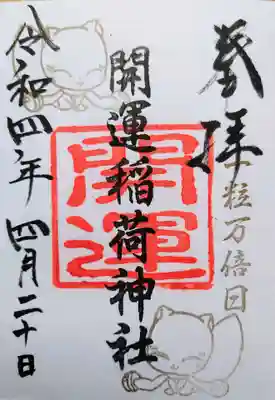 奉拝
一粒万倍日
開運稲荷神社
開運
令和四年 四月二十日